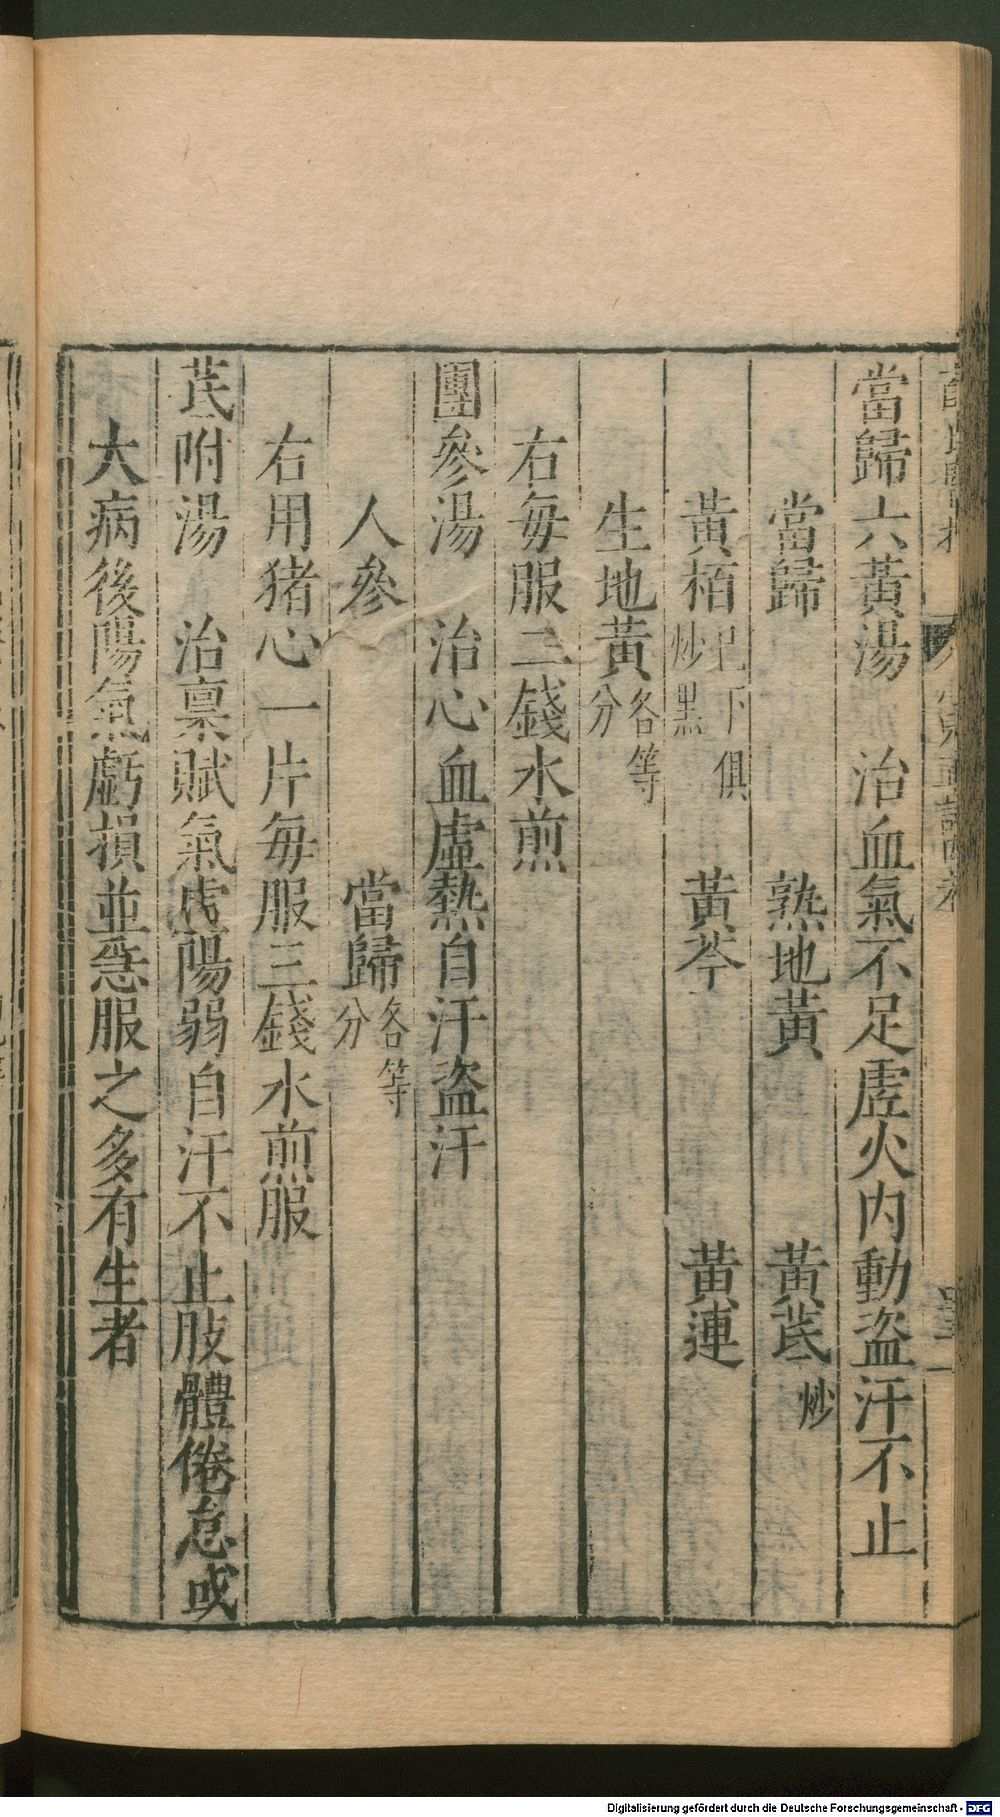 當歸六黃湯　治血氣不足虛火內動盜汗不止
當歸　熟地黃　黃芪炒
黃栢已下俱炒黑　黃芩　黃連
生地黃各等分
右每服二錢水煎
團參湯　治心血虛熱自汗盜汗
人參　當歸各等分
右用猪心一片每服三錢水煎服
芪附湯　治稟賦氣虛陽弱自汗不止肢體倦怠或
大病後陽氣虧損並急服之多有生者
Digitalisierung gefördert durch die Deutsche Forschungsgemeinschaft - DFG